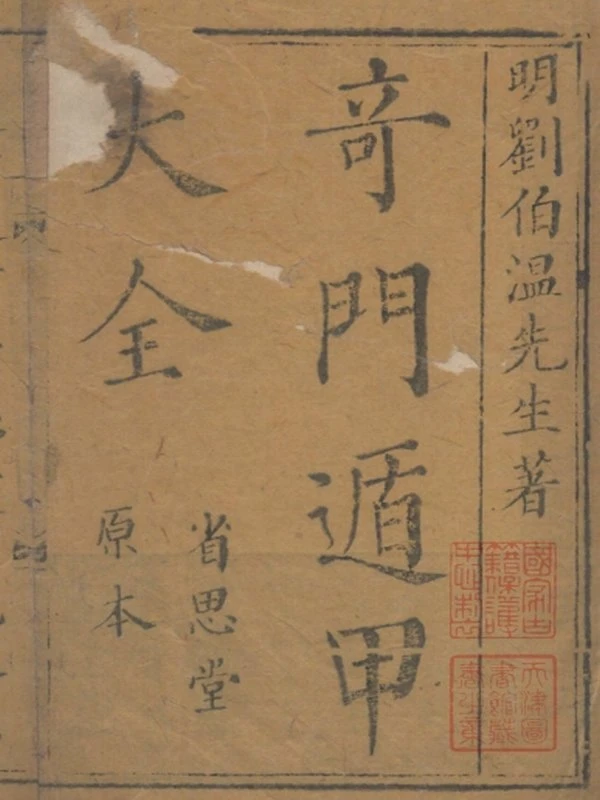 明劉伯温先生著
竒門遁甲
大全
省思堂
原本
國家古
籍保護
中心制
天津圖
書館藏